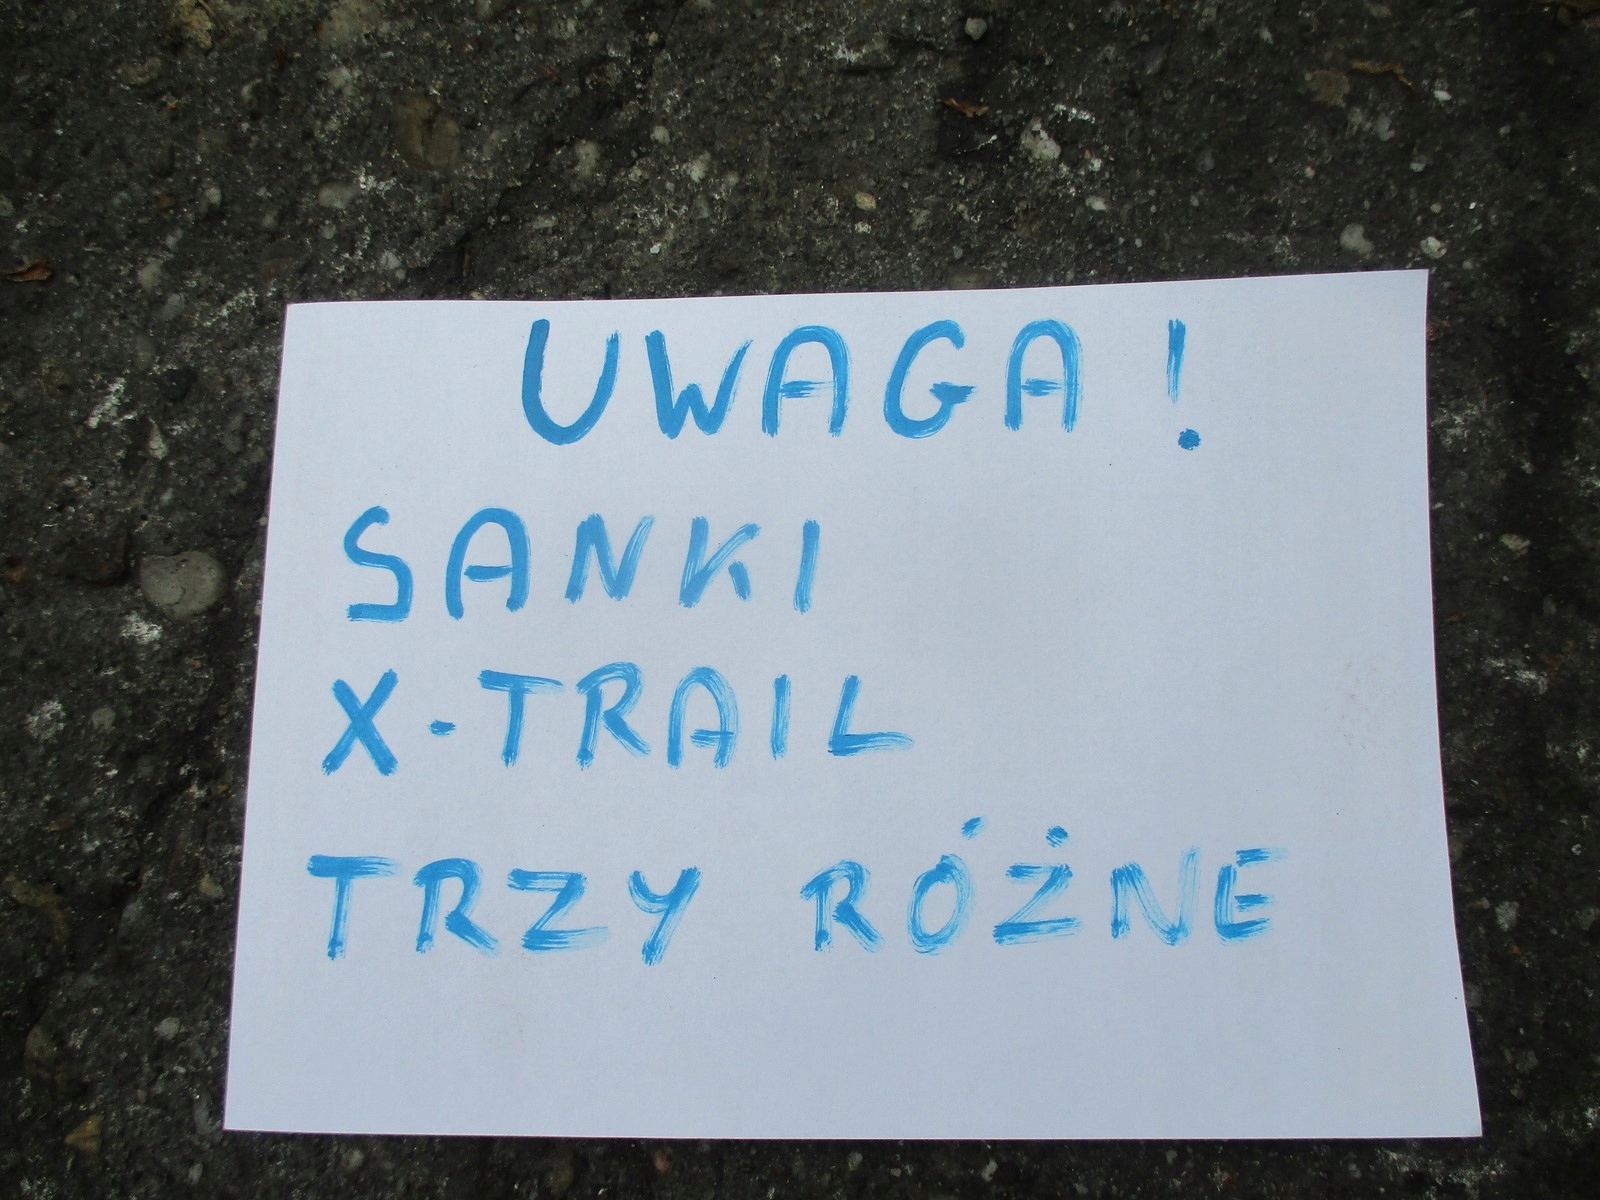 UWAGA!
SANKI
X-TRAIL
TRZY RÓŻNE